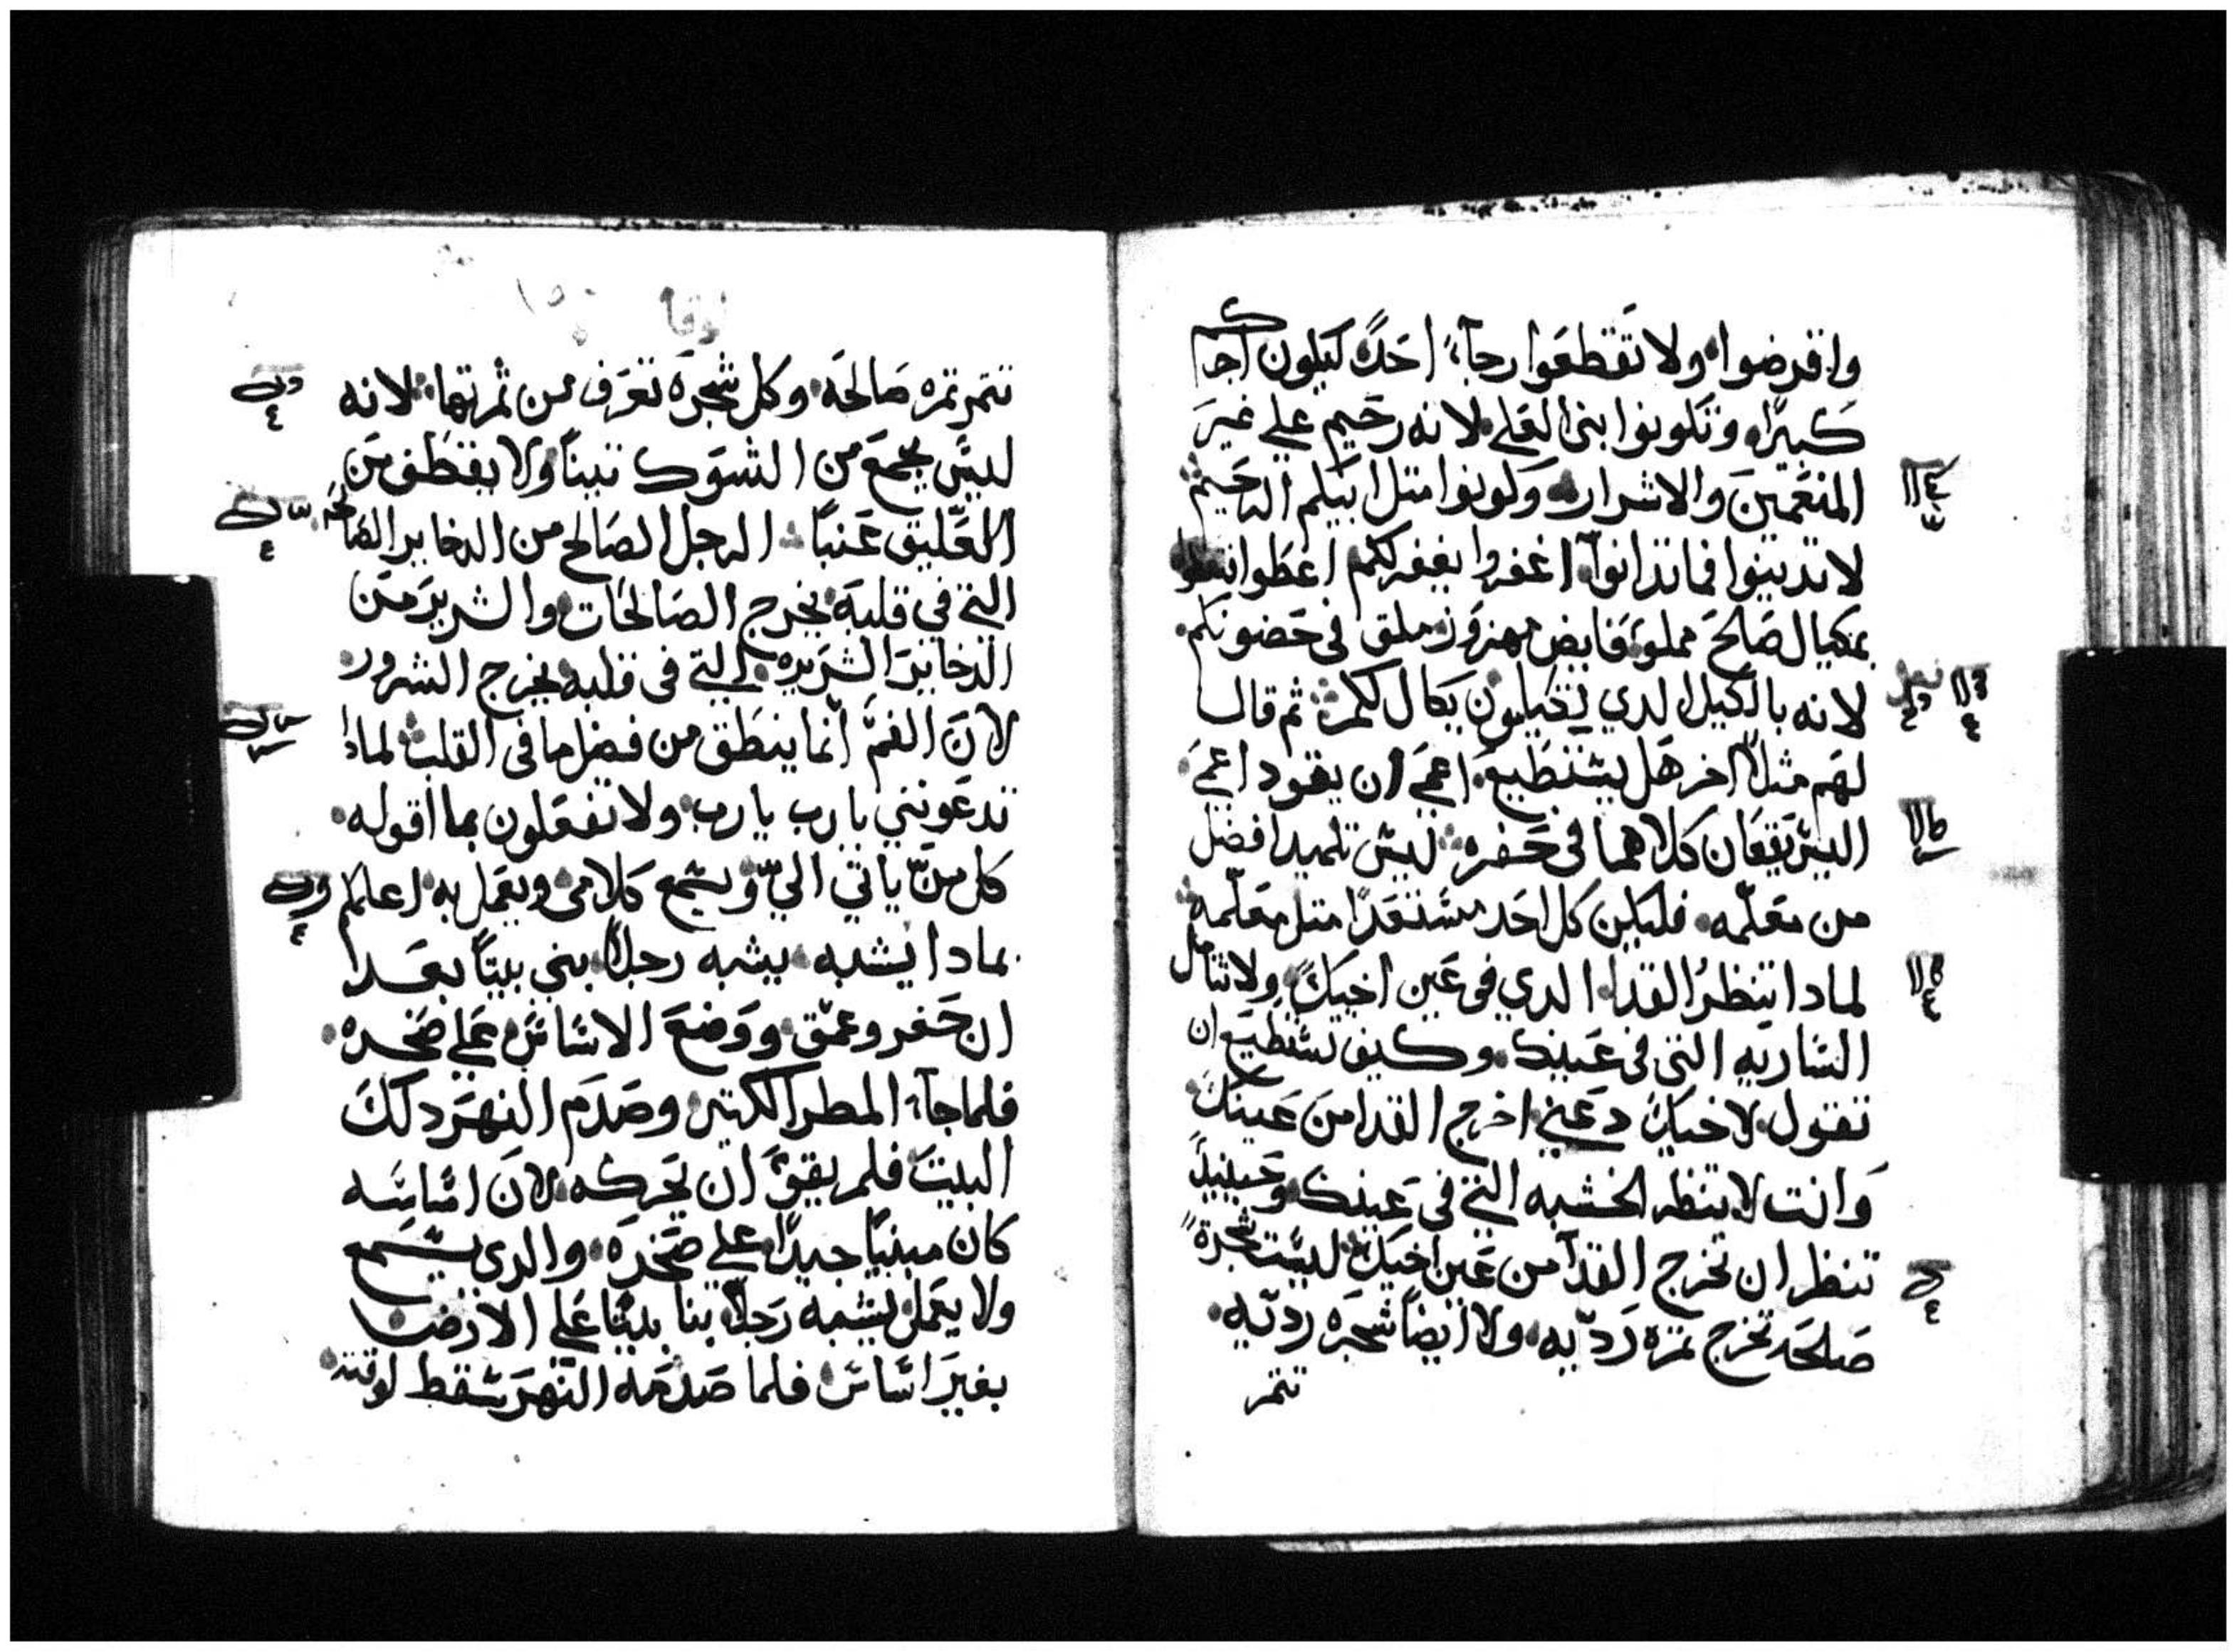 واقرضوا ولا تقطعوا رجآء احد ليكون اجركم
كبيرا وتكونوا بنى العلي لانه رحيم علي غير
المنعمين والاشرار وكونوا متل ابيكم الرحيم
لا تدينوا فما تدانوا اغفروا يغفر لكم اعطوا تعطوا
بمكيال صالح مملوء فايض مهزوز ملقى في حضونكم
لانه بالكيل الدي تكيلون يكال لكم ثم قال
لهم مثلا اخر هل يستطيع اعمي ان يقود اعمي
اليس يقعان كلاهما في حفره ليس تلميدا افضل
من معلمه فليكن كل احد مستعدا متل معلمه
لمادا تنظر القدا الدي في عين اخيك ولا تتامل
الساريه التي في عينك وكيف تستطيع ان
تقول لاخيك دعني اخرج القدا من عينك
وانت لا تنظر الخشبه التي في عينك وحينيد
تنظر ان تخرج القدا من عين اخيك ليست شجرة
صالحه تخرج تمره رديه ولا ايضا شجره رديه
تتمر
لوقا
تتمر تمره صالحه وكل شجره تعرف من ثمرتها لانه
ليس يجمع من الشوك تينا ولا يقطف من
العليق عنبا الرجل الصالح من الدخاير الصالحه
التي في قلبه يخرج الصالحات والشرير من
الدخاير الشريره التي في قلبه يخرج الشرور
لان الفم انما ينطق من فضل ما في القلب لمادا
تدعونني يا رب يا رب ولا تفعلون بما اقوله
كل من ياتي الي ويسمع كلامي ويعمل به اعلمكم
بمادا يشبه يشبه رجلا بني بيتا بعدا
ان حفر وعمق ووضع الاساس علي صخره
فلما جآء المطر الكتير وصدم النهر دلك
البيت فلم يقو ان يحركه لان اساسه
كان مبنيا جيدا علي صخره والدي يسمع
ولا يعمل يشبه رجلا بنا بيتا علي الارض
بغير اساس فلما صدمه النهر سقط لوقته